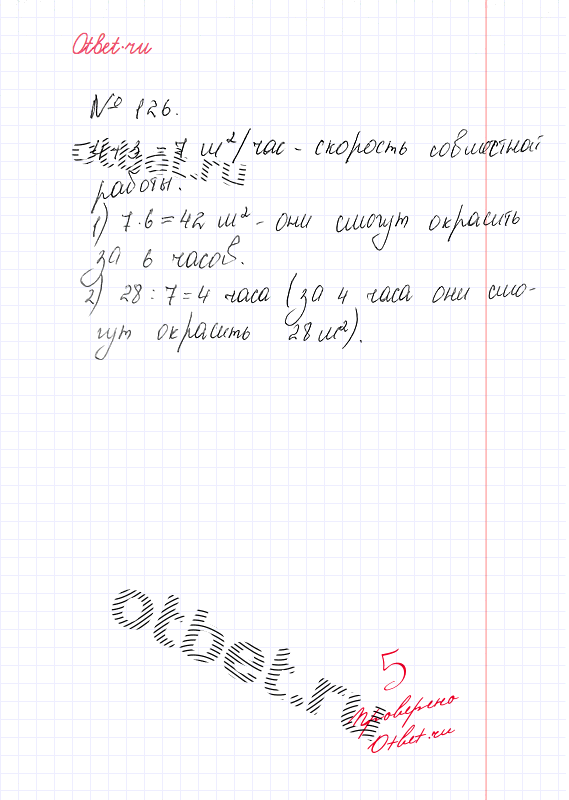 Otbet.ru
№ 126.
4+3 = 7 м²/час - скорость совместной
работы.
1) 7·6=42 м² - они смогут окрасить
за 6 часов.
2) 28:7=4 часа (за 4 часа они смо-
гут окрасить 28 м²).
otbet.ru
otbet.ru
5
Проверено
Otbet.ru